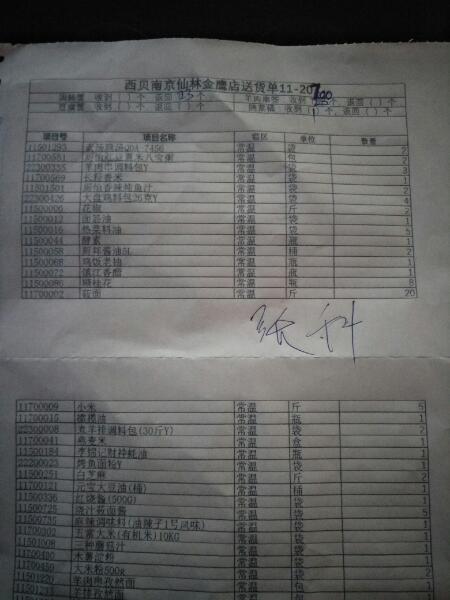 西贝南京仙林金鹰店送货单11-20
收到( )个 退回( )个 羊肉串签 收到 退回( )个
豆腐筐 收到( )个 退回( )个 收到( )个 退回( )个
项目号 项目名称 温区 单位 数量
11501293 常温 袋 2
11700581 常温 包 2
22300335 羊肉串调料包Y 常温 袋 3
11700569 长粒香米 常温 袋 1
11501501 常温 袋 2
22300426 大盘鸡料包26克Y 常温 袋 4
11500006 花椒 常温 斤 2
11500012 面筋油 常温 袋 1
11500016 热菜料油 常温 袋 5
11500044 酵素 常温 瓶 1
11500058 酱油5L 常温 桶 2
11500068 老抽 常温 瓶 1
11500072 镇江香醋 常温 瓶 1
11500086 糖桂花 常温 瓶 8
11700002 莜面 常温 斤 20
张科
11700009 小米 常温 斤 5
11700015 橄榄油 常温 瓶 1
22300008 煮羊排调料包(30斤Y) 常温 袋 2
11700041 燕麦米 常温 盒 1
11500184 李锦记财神蚝油 常温 瓶 1
22200023 烤鱼面粉Y 常温 袋 1
11500251 白芝麻 常温 斤 2
11700121 元宝大豆油(桶) 常温 桶 1
11500336 红烧酱(500G) 常温 袋 1
11500725 浇汁莜面酱 常温 袋 5
11500735 麻辣调味料(油辣子1号风味) 常温 袋 1
11700302 五常大米(有机米)10KG 常温 袋 1
11501008 三种蘑菇汁 常温 袋 2
11700400 木薯淀粉 常温 袋 1
11700450 大米粉500g 常温 袋 2
11501220 羊肉串孜然面 常温 袋 1
羊排孜然面 常温